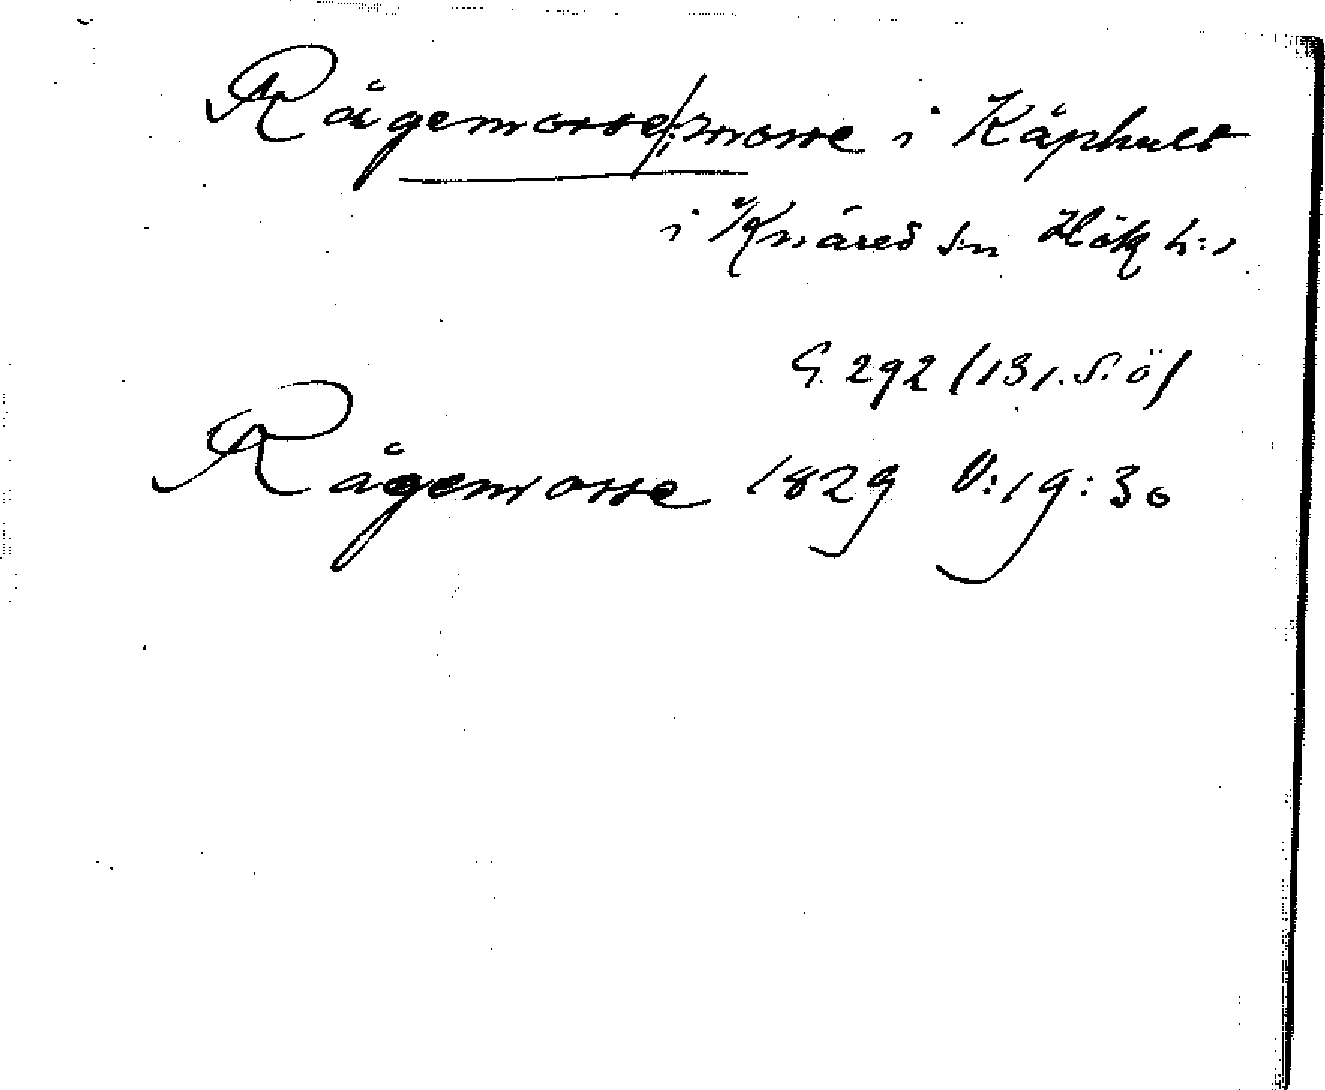 Rågemosse/: mosse i Käphult
i Knäred sn Hök h:d
G. 292 /131. S. ö/
Rågemosse 1829 V:19:30